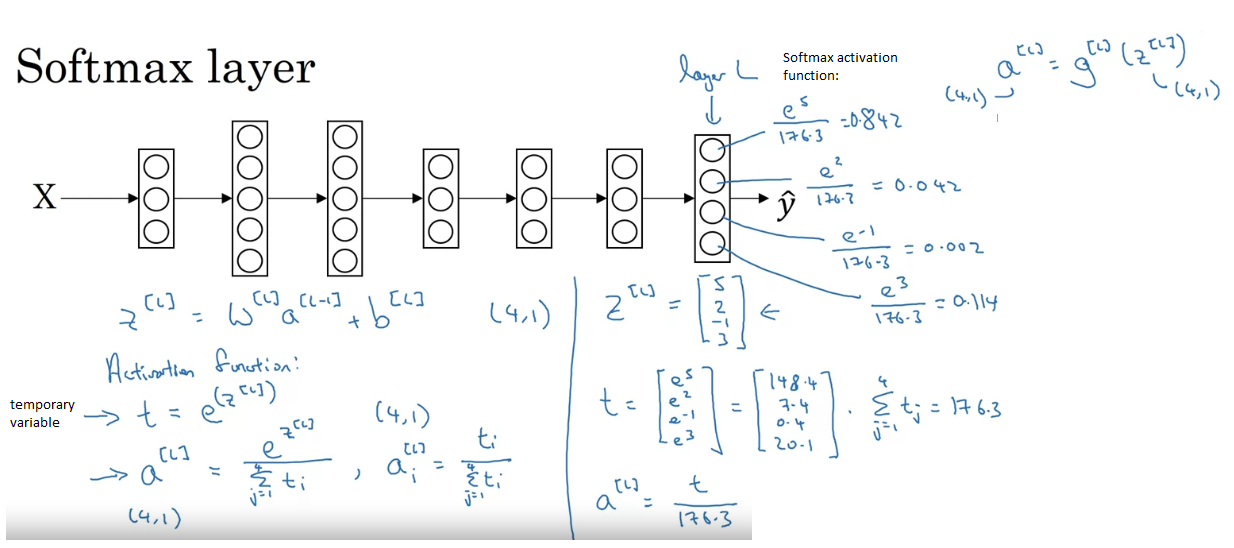 Softmax layer
layer L
Softmax activation
function:
a^[L] = g^[L] (z^[L])
(4,1)
(4,1)
e^5 / 176.3 = 0.842
e^2 / 176.3 = 0.042
e^-1 / 176.3 = 0.002
e^3 / 176.3 = 0.114
X
ŷ
z^[L] = W^[L] a^[L-1] + b^[L] (4,1)
Activation function:
temporary
variable
→ t = e^(z^[L]) (4,1)
→ a^[L] = e^z^[L] / ∑_{j=1}^{4} t_i , a_i^[L] = t_i / ∑_{j=1}^{4} t_i
(4,1)
z^[L] = [5 2 -1 3] ←
t = [e^5 e^2 e^-1 e^3] = [148.4 7.4 0.4 20.1] . ∑_{j=1}^{4} t_j = 176.3
a^[L] = t / 176.3